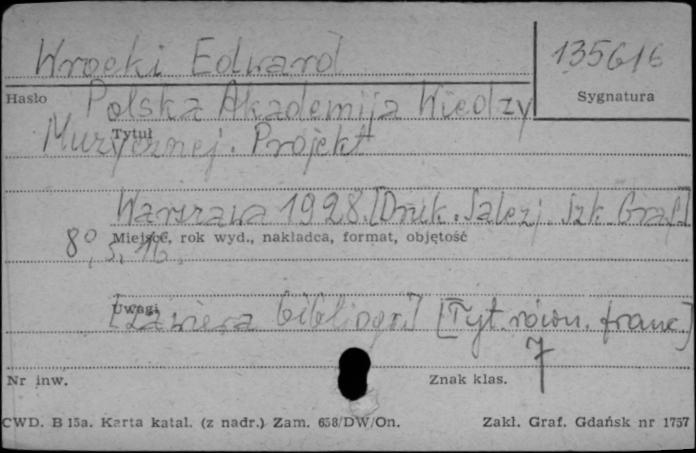 Wrocki Edward
135616
Hasło
Sygnatura
Polska Akademija Wiedzy
Tytuł
Muzycznej. Projekt
Warszawa 1928. [Druk. Salezj. Szk. Graf.]
Miejsce, rok wyd., nakładca, format, objętość
8°, s. 16.
Uwagi
[Zawiera bibliogr.] [Tyt. równ. franc.]
7
Nr inw.
Znak klas.
CWD. B 15a. Karta katal. (z nadr.) Zam. 658/DW/On.
Zakł. Graf. Gdańsk nr 1757